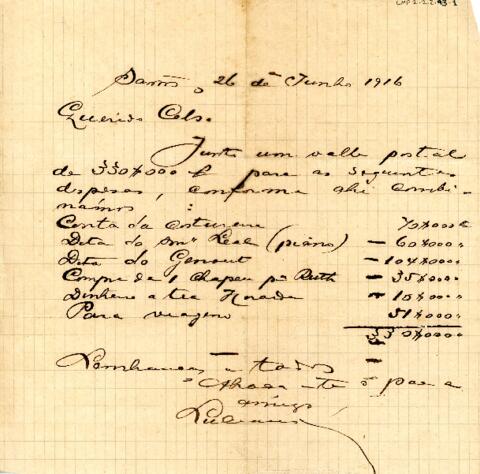 26 de Junho 1916
Querido Celso
Junto um valle postal
de 330$000 para as seguintes
despesas, conforme ahi combi-
námos:
Conta da costureira 70$000
Dita do Snr Leal (piano) — 60$000
Dita do — 104$000
Compra de 1 Chapeu pa Ruth — 35$000
Dinheiro a tia — 10$000
Para viagem 51$000
330$000
Lembranças a todos
Abraça-te o pae e
amigo,